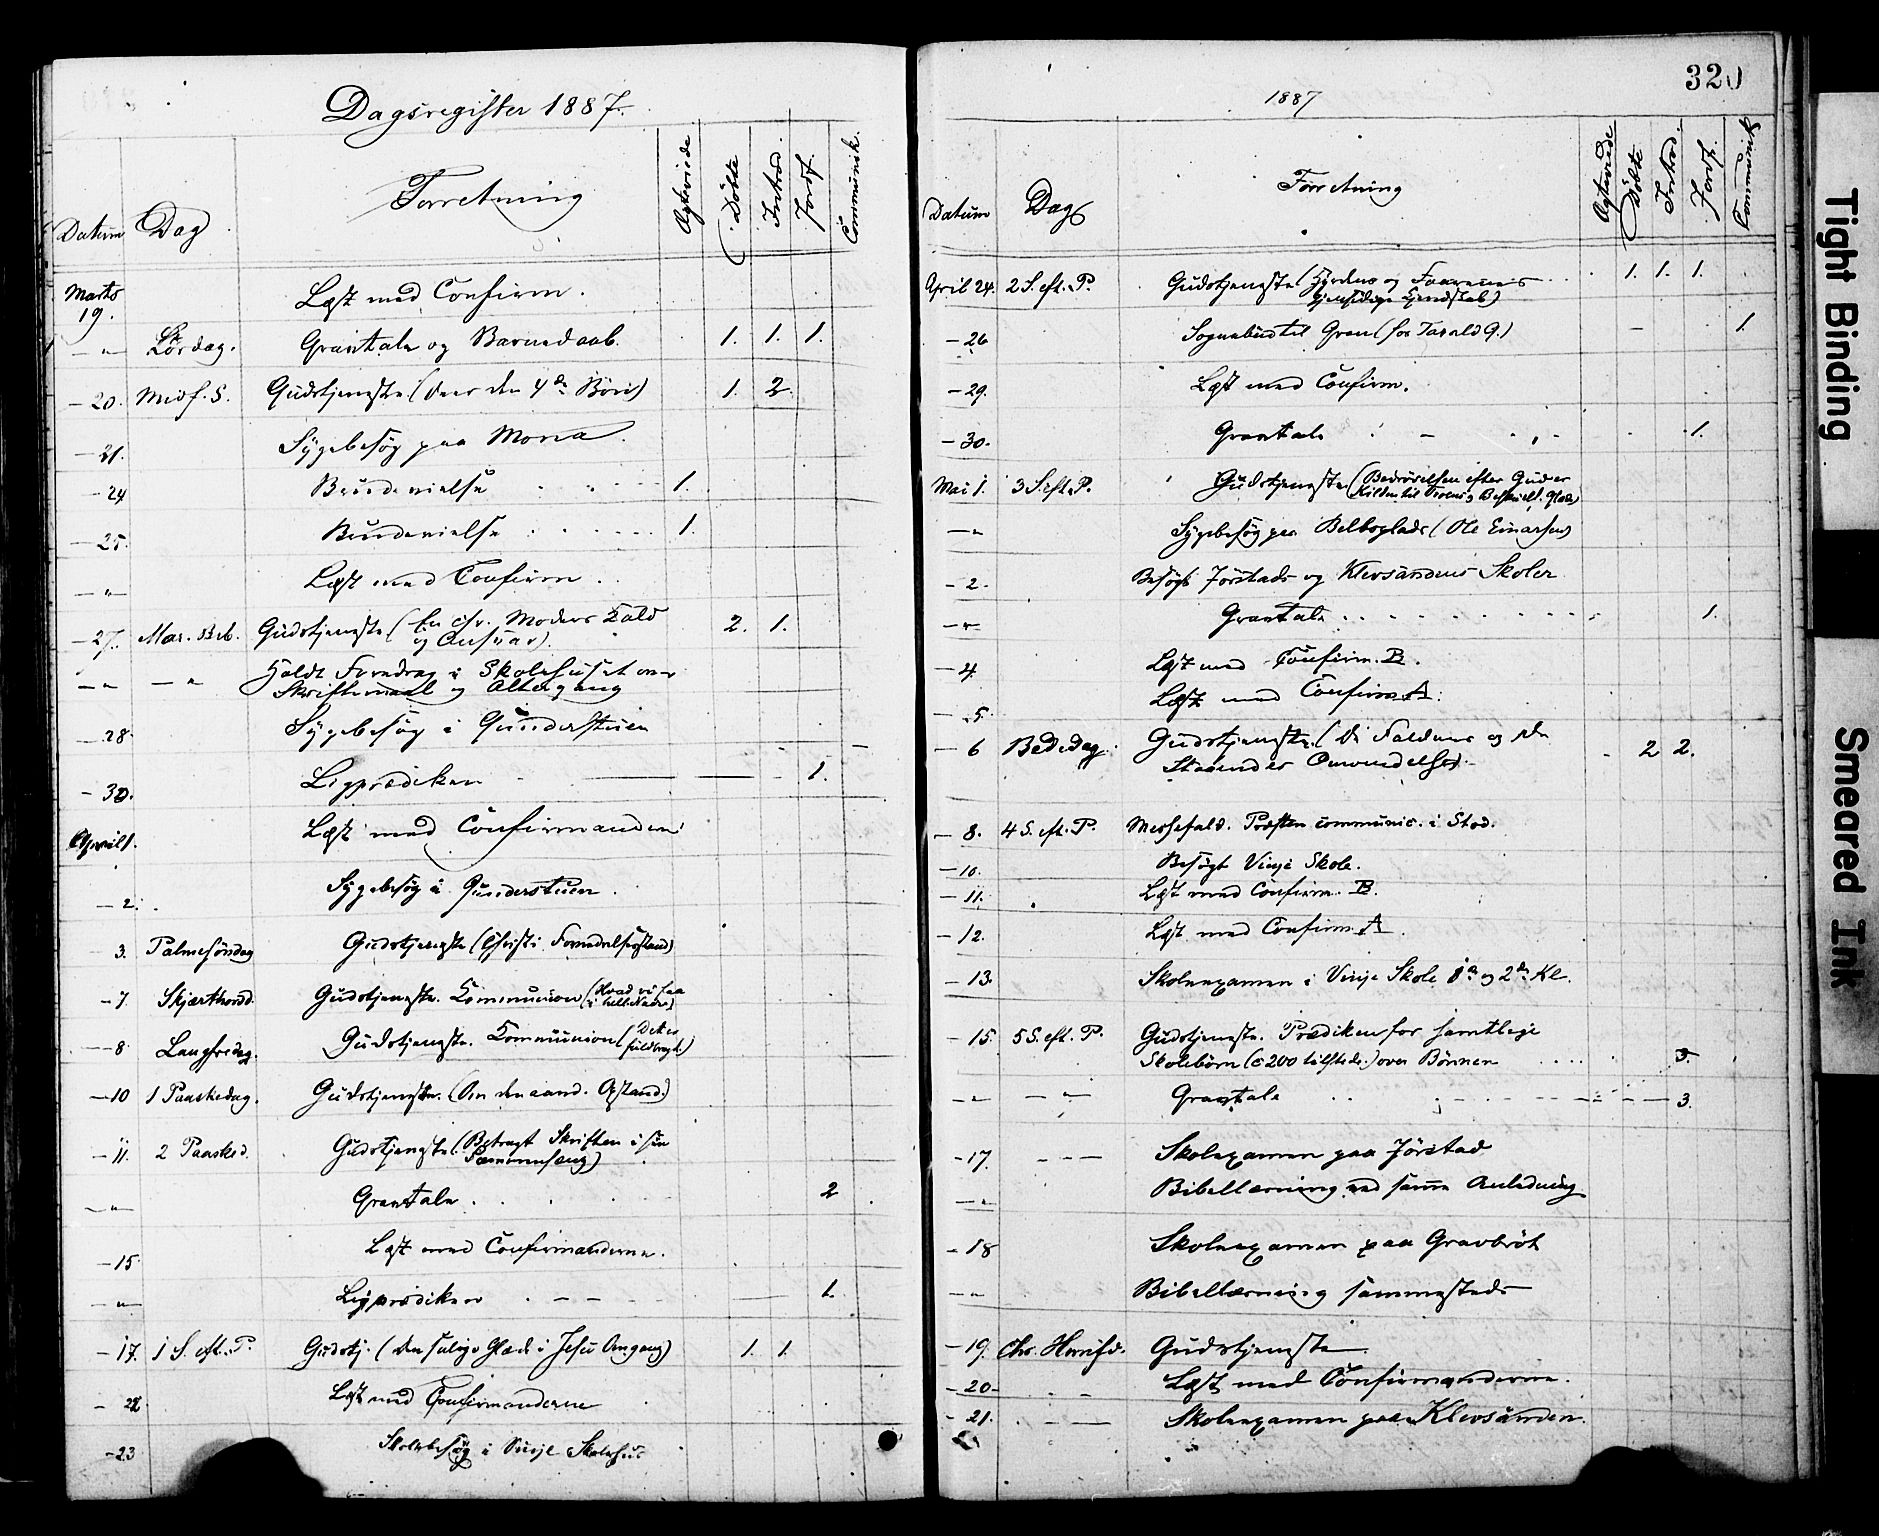 Dagsregister 1887.
Datum Dag Forretning Egteviede Döbte Introd. Jordf. Communik.
Marts 19. Læst med Confirm.
— " — Lördag. Gravtale og Barnedaab. 1. 1. 1.
— 20. Midf. S. Gudstjeneste (Over den 4de Bön) 1. 2.
— 21. Sygebesøg paa Mona.
— 24 Brudevielse 1.
— 25. Brudevielse 1.
— " — Læst med Confirm.
— 27. Mar. Beb. Gudstjeneste (En chr. Moders Kald
og Ansvar). 2. 1.
— " — " Holdt Foredrag i Skolehuset over
Skriftemaal og Altergang
— 28 Sygebesøg i Gunderstuen
— 30. Ligprædiken 1.
April 1. Læst med Confirmanderne
— 2. Sygebesøg i Gunderstuen.
— 3. Palmesöndag Gudstjeneste (Christi Fornedrelsesstand)
— 7. Skjærthorsd. Gudstjeneste. Communion (Hvad vi faa
i hell. Nadv.)
— 8 Langfredag. Gudstjeneste. Communion (Det er
fuldbragt.)
— 10 1 Paaskedag. Gudstjeneste. (Om den aand. Opstand.)
— 11. 2 Paasked. Gudstjeneste. (Betragt Skriften i sin
Sammenhæng)
— " — Gravtale 2
— 15. Læst med Confirmanderne.
— " — Ligprædiken 1.
— 17. 1 S. eft. P. Gudstj. (Den salige Glæde i Jesu Omgang) 1. 1.
— 22. Læst med Confirmanderne
— 23 Skolebesøg i Vinje Skolehus
320
1887
Datum Dag Forretning Egteviede Döbte Introd. Jordf. Communik
April 24. 2 S. eft. P. Gudstjeneste (Hyrdens og Faarenes
gjensidige Kjendskab) 1. 1. 1.
— 26 Sognebud til Gran (for Tarald G.) 1.
— 29. Læst med Confirm.
— 30. Gravtale 1.
Mai 1. 3 S. eft. P. Gudstjeneste (Bedrövelsen efter Gud er
Kilden til Glæde)
— " Sygebesög paa Belboplads (Ole Einarsen)
— 2. Besögt Jörstads og Klevsandens Skoler
— " — Gravtale 1.
— 4. Læst med Confirm. B.
— 5. Læst med Confirm. A.
— 6 Bededag. Gudstjeneste. (De Faldnes og de
Staaendes Omvendelse) 2 2.
— 8. 4 S. eft. P. Messefald. Præsten communic. i Stod.
— 10. Besögt Vinje Skole.
— 11. Læst med Confirm. B.
— 12. Læst med Confirm. A.
— 13. Skoleexamen i Vinje Skole 1ste og 2den Kl.
— 15. 5 S. eft. P. Gudstjeneste. Prædiken for samtlige
Skolebörn (c 200 tilstede.) over Bönnen 3.
— " — — " — Gravtale 3.
— 17. — — — Skoleexamen paa Jörstad
— " — Bibellæsning ved samme Anledning
— 18 Skoleexamen paa Gravbröt
— " — Bibellæsning sammesteds
— 19. Chr. Himfd. Gudstjeneste
— 20 — Læst med Confirmanderne.
— 21. — — Skoleexamen paa Klevsanden.
Tight Binding
Smeared Ink